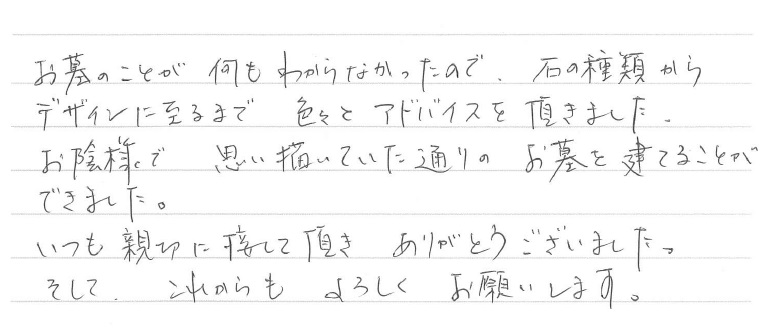 お墓のことが 何もわからなかったので、石の種類から
デザインに至るまで 色々とアドバイスを頂きました。
お陰様で 思い描いていた通りの お墓を建てることが
できました。
いつも親切に接して頂き ありがとうございました。
そして、これからも よろしく お願いします。